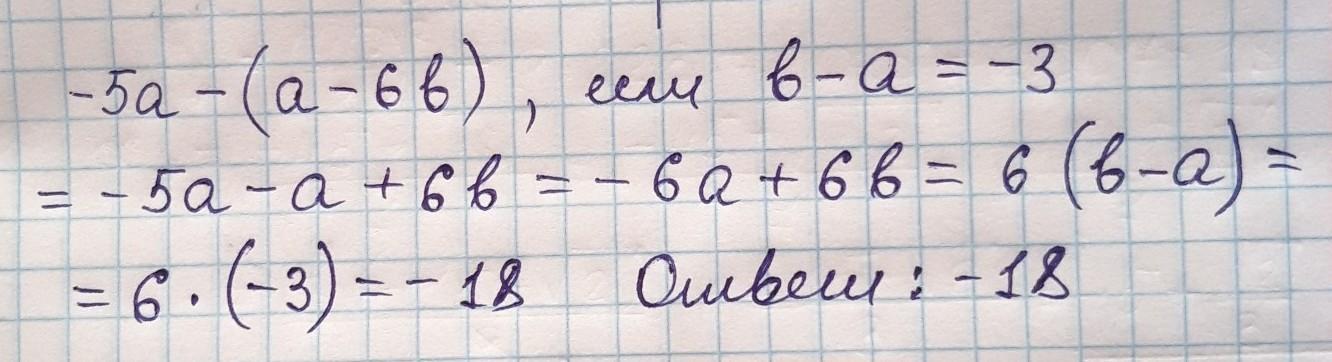 -5a-(a-6в), если в-a=-3
=-5a-a+6в=-6a+6в=6(в-a)=
=6·(-3)=-18 Ответ: -18